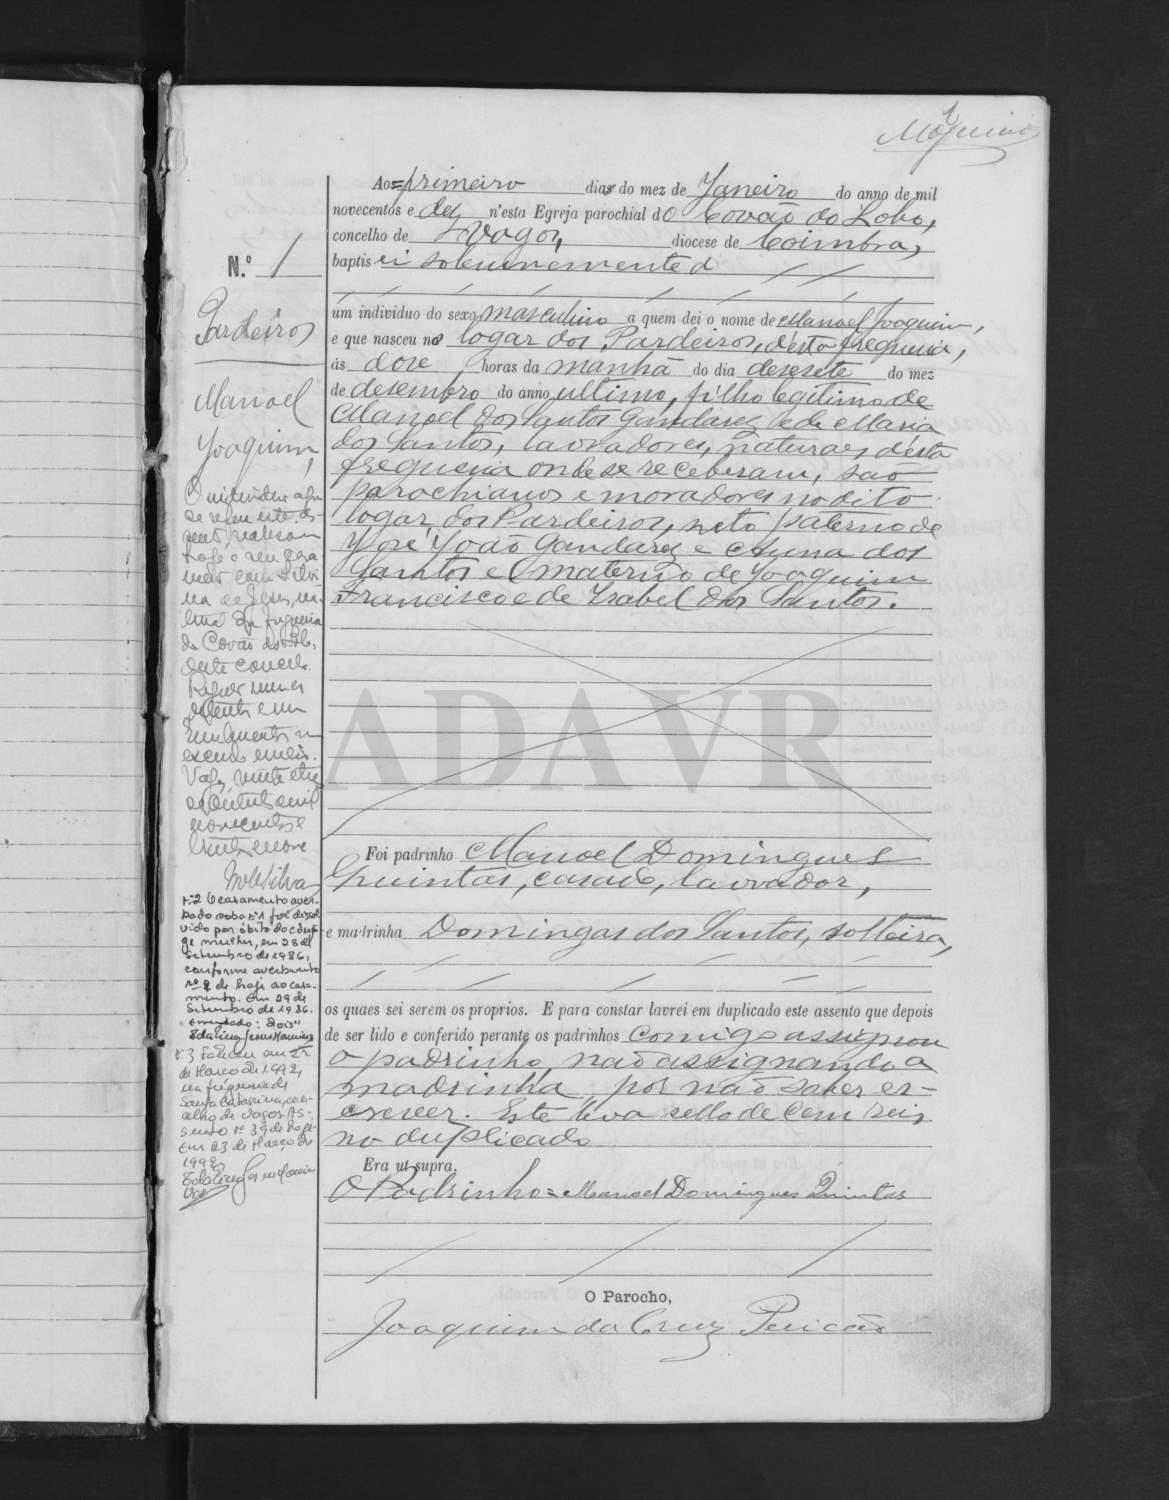 1
Ao=primeiro dias do mez de Janeiro do anno de mil
novecentos e dez n'esta Egreja parochial dO Covão do Lobo,
concelho de Vagos, diocese de Coimbra,
baptisei solemnemente
um individuo do sexo masculino a quem dei o nome de Manoel Joaquim,
e que nasceu no logar dos Pardeiros, d'esta freguesia,
ás dose horas da manhã do dia desesete do mez
de desembro do anno ultimo, filho legitimo de
Manoel dos Santos Gandarez e de Maria
dos Santos, lavradores, naturaes d'esta
freguesia onde se receberam, são
parochianos e moradores no dito
logar dos Pardeiros, neto paterno de
José João Gandarez e Anna dos
Santos e materno de Joaquim
Francisco e de Isabel dos Santos.
Foi padrinho Manoel Domingues
Quintas, casado, lavrador,
e madrinha Domingas dos Santos, solteira,
os quaes sei serem os proprios. E para constar lavrei em duplicado este assento que depois
de ser lido e conferido perante os padrinhos comigo assignou
o padrinho, não assignando a
madrinha por não saber es-
crever. Este leva sello de cem reis
no duplicado
Era ut supra.
O Padrinho=Manoel Domingues Quintas
O Parocho,
Joaquim da Cruz Pericão
N.º 1
Pardeiros
Manoel
Joaquim,
O individuo a que
se refere este as-
sento, realisou
hoje o seu casa
mento com Silvi
na de Jesus, na
tural da freguesia
de Covão do Lobo,
deste concelho.
Vagos, vinte e tres
de Outubro de mil
novecentos e
trinta e nove
N.º 2 O casamento aver-
bado sob o nº 1 foi dissol
vido por óbito do cônju
ge mulher, em 28 de
Setembro de 1986,
conforme averbamento
nº 2 de hoje ao casa-
mento. Em 29 de
Setembro de 1986.
Emendado: "dois"
Nº 3 Faleceu em
de Março de 1992,
na freguesia de
Santa Catarina, con-
celho de Vagos. As-
sento nº 39 de hoje.
Em 23 de Março de
1992
ADAVR